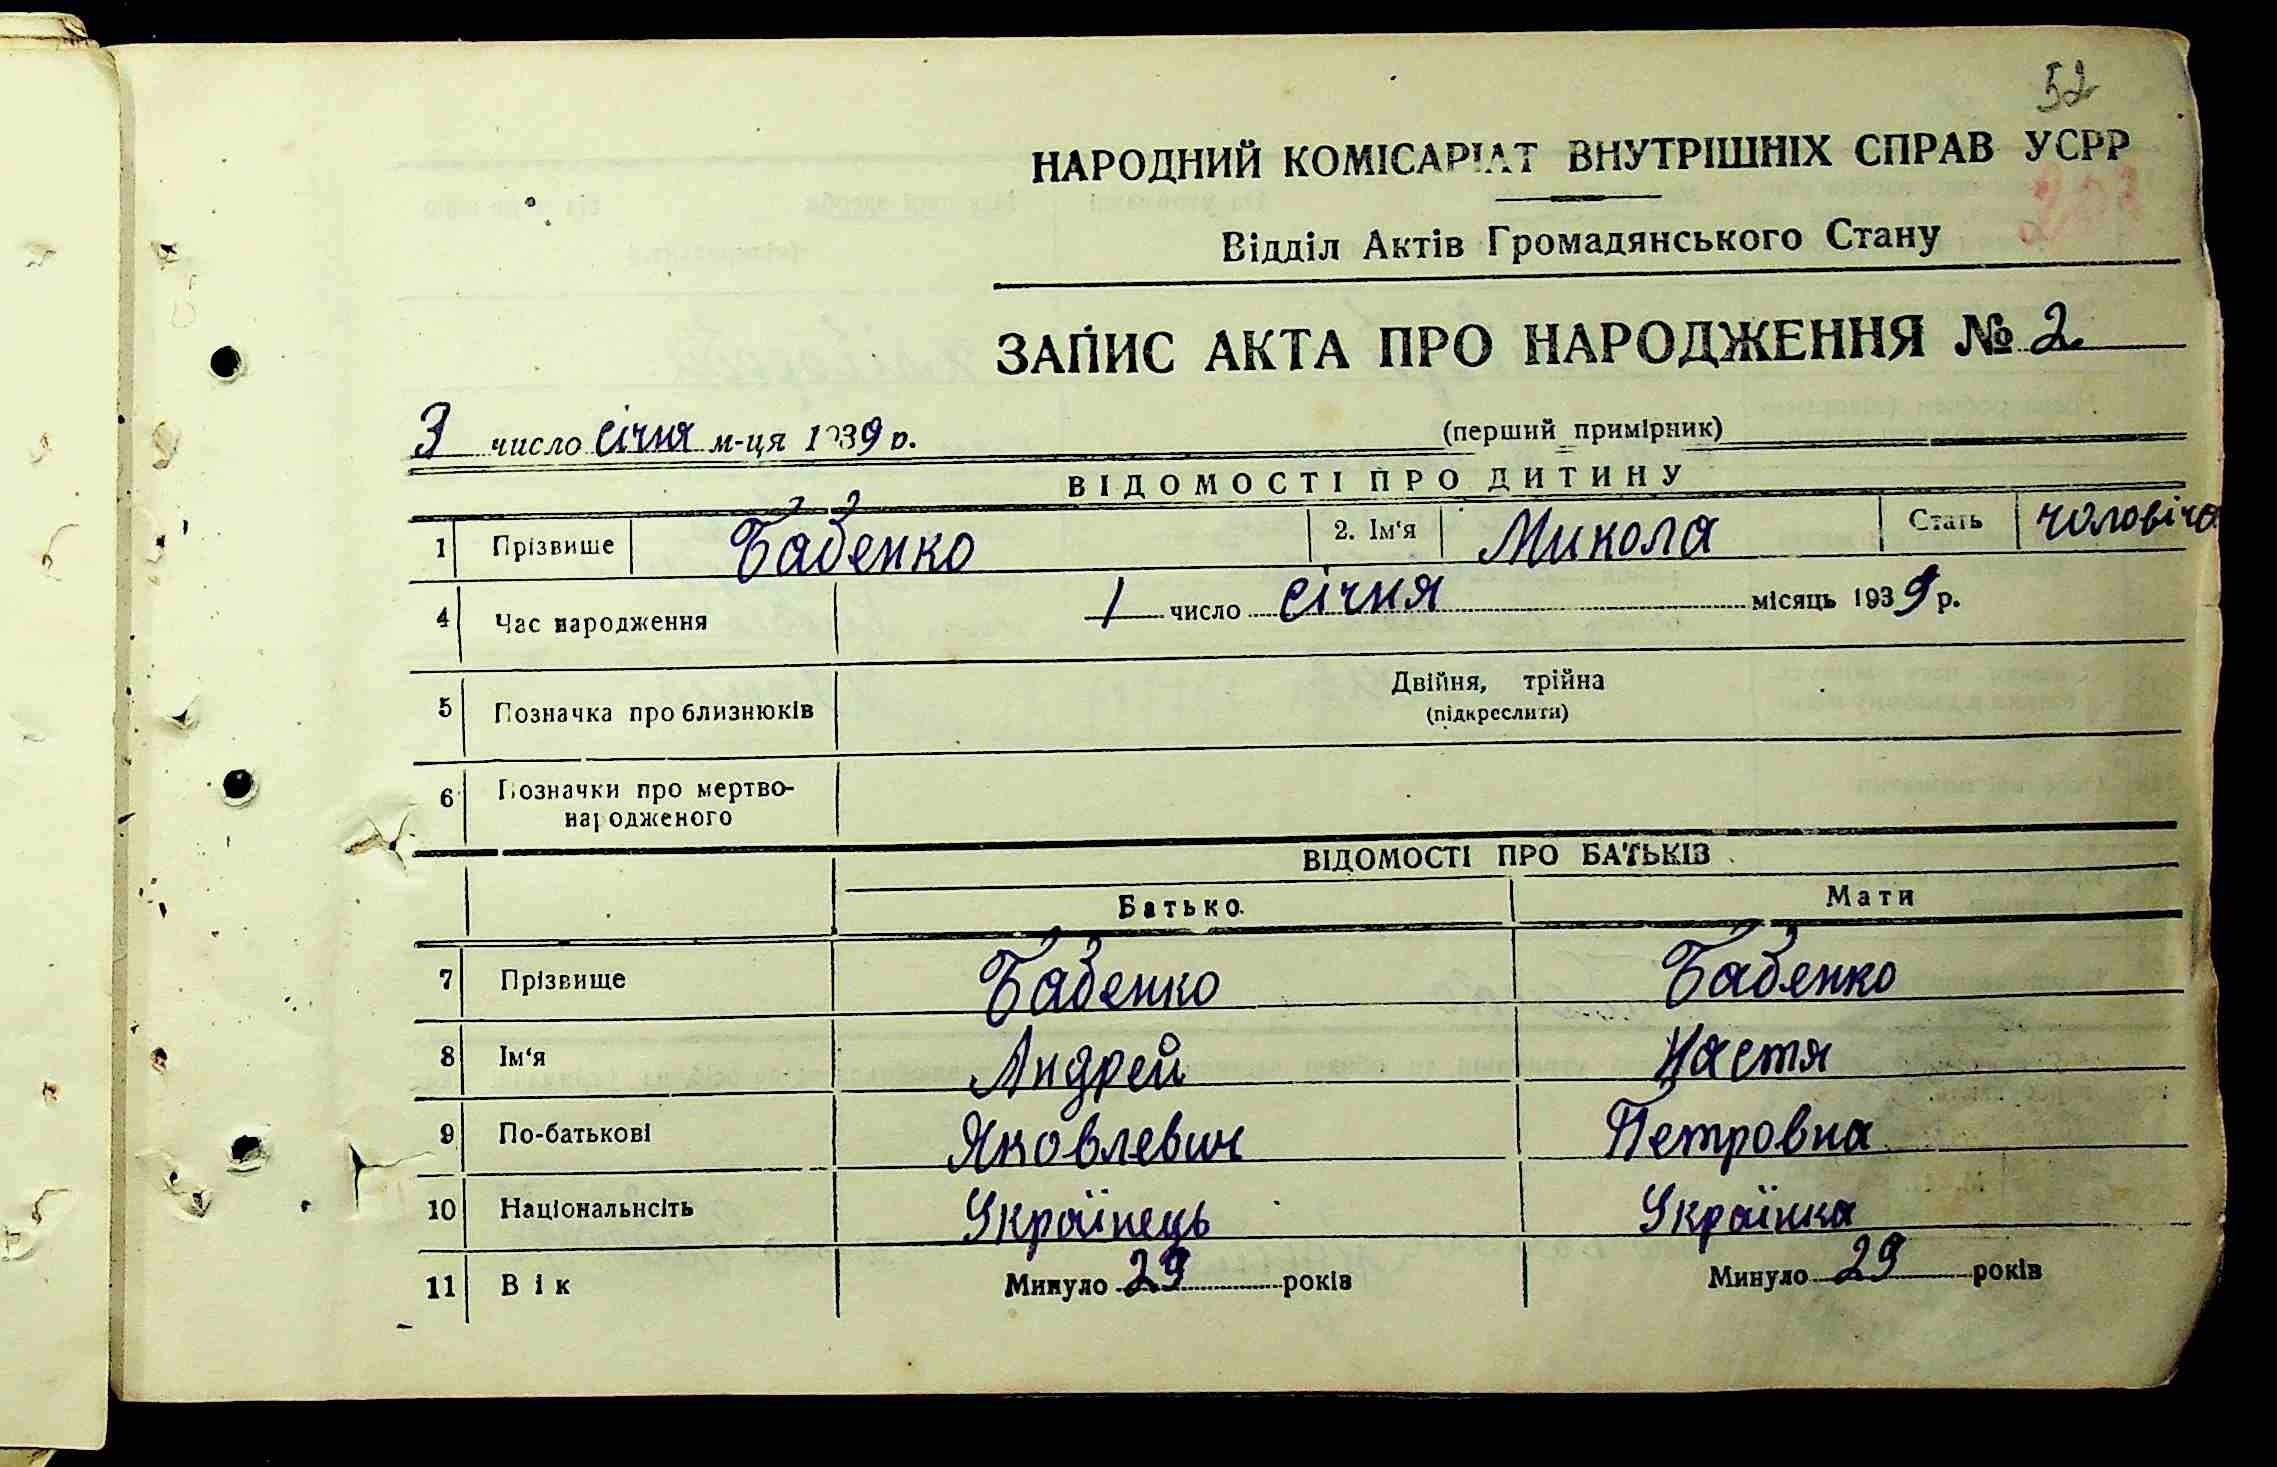 52
НАРОДНИЙ КОМІСАРІАТ ВНУТРІШНІХ СПРАВ УСРР
Відділ Актів Громадянського Стану
ЗАПИС АКТА ПРО НАРОДЖЕННЯ № 2
3 число січня м-ця 1939 р.
(перший примірник)
ВІДОМОСТІ ПРО ДИТИНУ
1 Прізвище Бабенко 2. Ім'я Микола Стать чоловіча
4 Час народження 1 число січня місяць 1939 р.
5 Позначка про близнюків Двійня, трійна
(підкреслити)
6 Позначки про мертво-
народженого
ВІДОМОСТІ ПРО БАТЬКІВ
Батько Мати
7 Прізвище Бабенко Бабенко
8 Ім'я Андрей Настя
9 По-батькові Яковлевич Петровна
10 Національнсіть Українець Українка
11 Вік Минуло 29 років Минуло 29 років